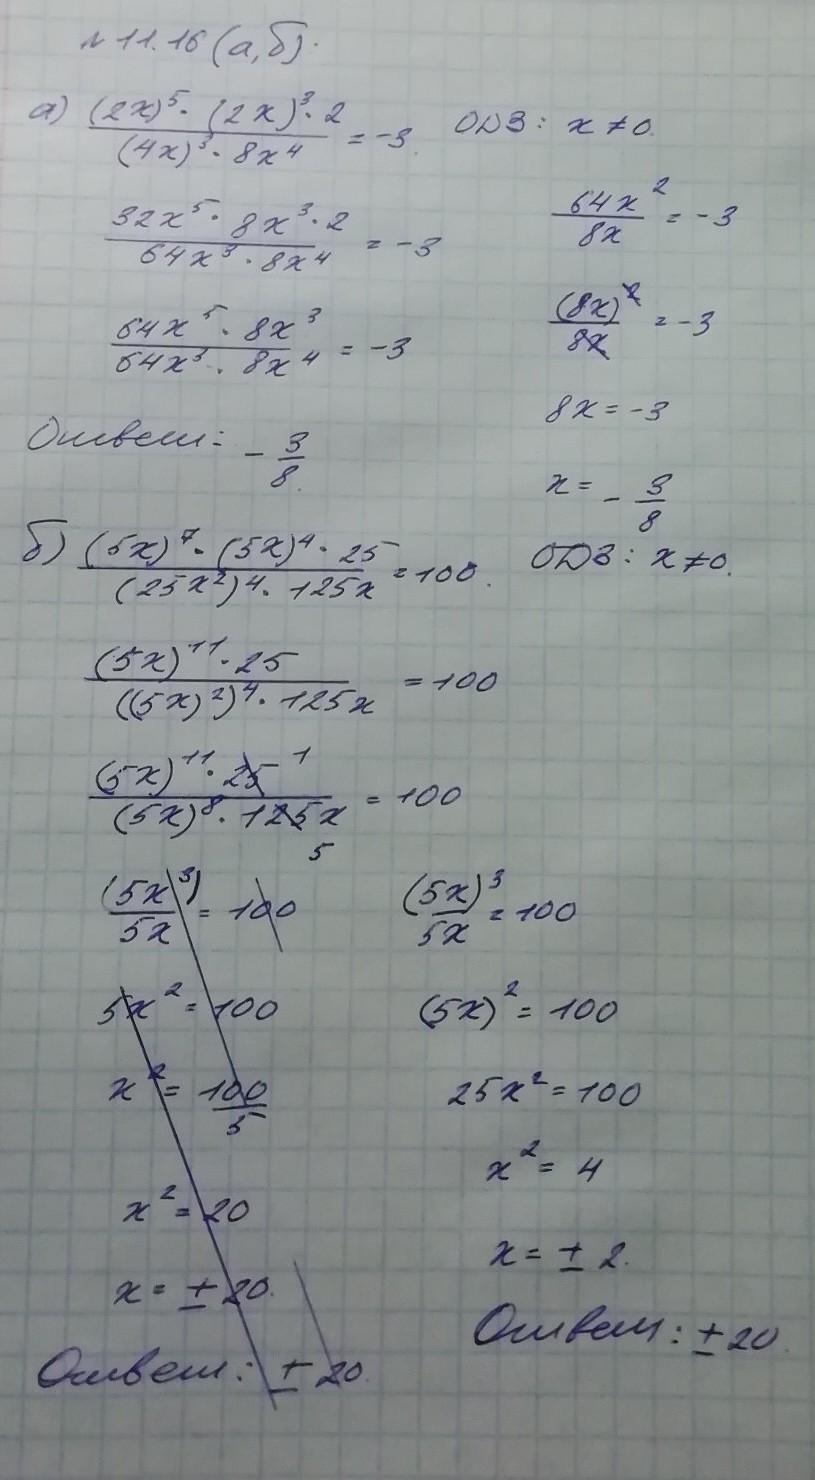 № 11.16 (а,б).
а) (2x)⁵ · (2x)³ · 2 / (4x)³ · 8x⁴ = -3. ОДЗ: x ≠ 0.
32x⁵ · 8x³ · 2 / 64x³ · 8x⁴ = -3
64x⁵ · 8x³ / 64x³ · 8x⁴ = -3
Ответ: - 3/8.
64x² / 8x = -3
(8x)² / 8x = -3
8x = -3
x = - 3/8
б) (5x)⁷ · (5x)⁴ · 25 / (25x²)⁴ · 125x = 100. ОДЗ: x ≠ 0.
(5x)¹¹ · 25 / ((5x)²)⁴ · 125x = 100
(5x)¹¹ · 25 1 / (5x)⁸ · 125x 5 = 100
(5x³) / 5x = 100
5x² = 100
x² = 100/5
x² = 20
x = ± 20.
Ответ: ± 20.
(5x)³ / 5x = 100
(5x)² = 100
25x² = 100
x² = 4
x = ± 2.
Ответ: ± 20.